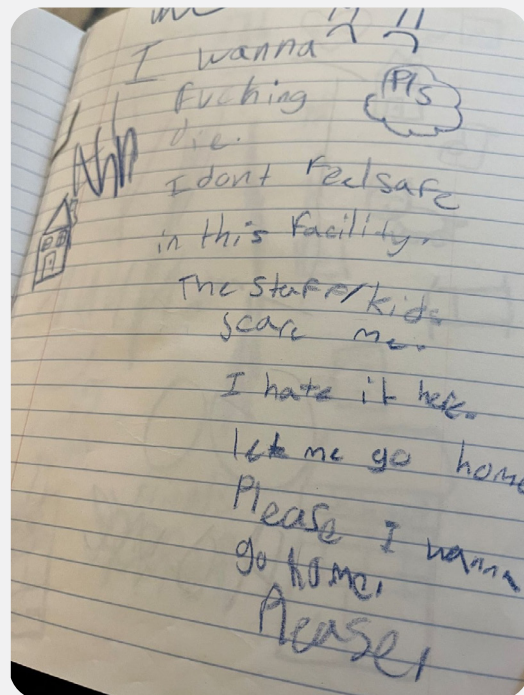 I wanna
fucking
Pls
die.
Ahh
I dont feel safe
in this facility.
The staff/kids
scare me.
I hate it here.
let me go home
Please I wanna
go home.
Please,